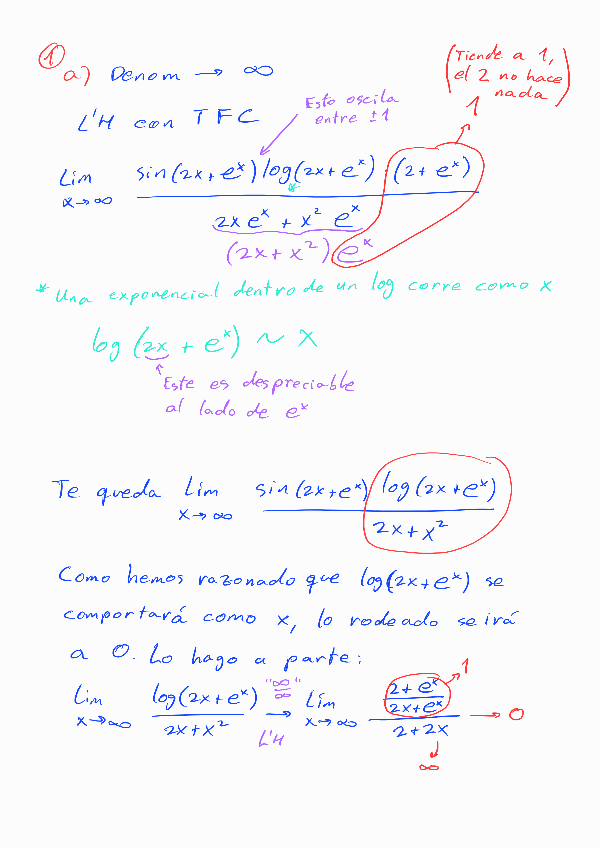 ① a) Denom → ∞
(Tiende a 1,
el 2 no hace
nada)
L'H con TFC
Esto oscila
entre ±1
1
Lim x→∞ sin(2x+e^x) log(2x+e^x) (2+e^x)
2x e^x + x² e^x
(2x+x²) e^x
* Una exponencial dentro de un log corre como x
log (2x + e^x) ~ x
Este es despreciable
al lado de e^x
Te queda Lim x→∞ sin(2x+e^x) log(2x+e^x)
2x+x²
Como hemos razonado que log(2x+e^x) se
comportará como x, lo rodeado se irá
a 0. Lo hago a parte:
Lim x→∞ log(2x+e^x) / 2x+x² "∞/∞" → L'H Lim x→∞ (2+e^x / 2x+e^x) / 2+2x → 0
1
∞